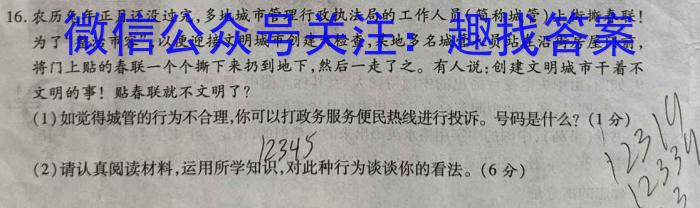 16.农历兔年正月还没过完,多地城市管理行政执法局的工作人员(简称城管)上街撕春联!
微信公众号关注:趣找答案
为了
市容
以便迎接文明城市创建
检查,某地多名城
将门上贴的春联一个个撕下来扔到地下,然后一走了之。有人说:创建文明城市干着不
文明的事!贴春联就不文明了?
(1)如觉得城管的行为不合理,你可以打政务服务便民热线进行投诉。号码是什么?(1分)
12345
(2)请认真阅读材料,运用所学知识,对此种行为谈谈你的看法。(6分)
12314
12334
3